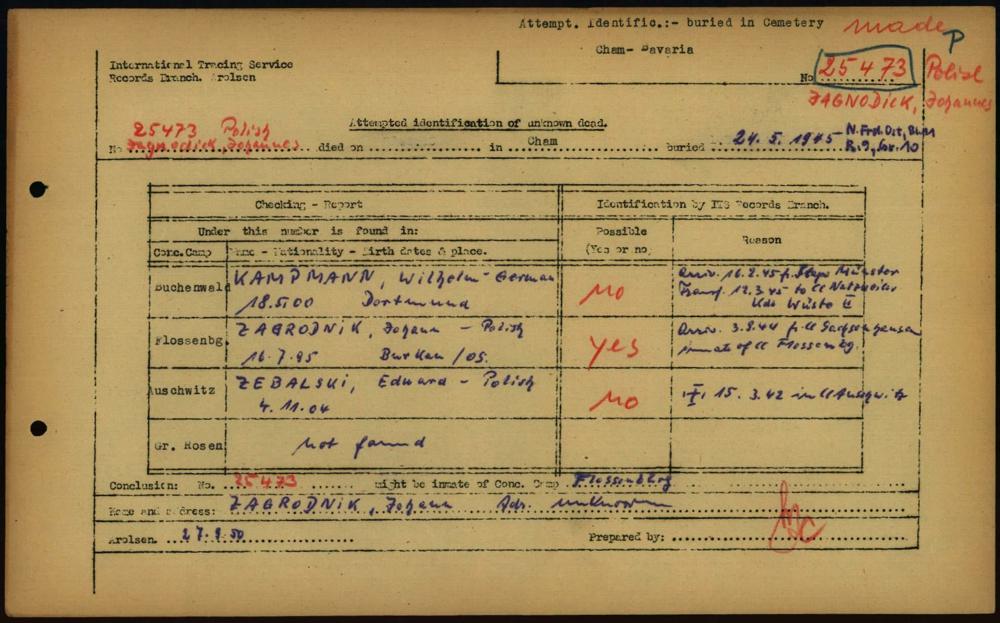 Attempt. Identific.:- buried in Cemetery made P
Cham- Bavaria
International Tracing Service
Records Branch. Arolsen
No 25473 Polish
ZAGNODICK, Johannes
Attempted identification of unknown dead.
25473 Polish
No Zagnodick, Johannes died on in Cham buried 24.5.1945
R.9, Gr.10
Checking - Report Identification by ITS Records Branch.
Under this number is found in: Possible Reason
Conc.Camp Name - Nationality - Birth dates & place. (Yes or no)
Buchenwald KAMPMANN, Wilhelm - German no arriv. 16.2.45 fr. Stapo Münster
18.5.00 Dortmund Transf. 12.3.45 to CC Natzweiler
Kdo Wüste II
Flossenbg. ZAGRODNIK, Johann - Polish yes arriv. 3.9.44 fr. CC Sachsenhausen
16.7.95 Burkau/OS. inmate of CC Flossenbg.
Auschwitz ZEBALSKI, Edward - Polish no 15.3.42 in CC Auschwitz
4.11.04
Gr. Rosen not found
Conclusion: No. 25473 might be inmate of Conc. Camp Flossenbürg
Name and address: ZAGRODNIK, Johann Adr. unknown
Arolsen. 27.9.50 Prepared by: